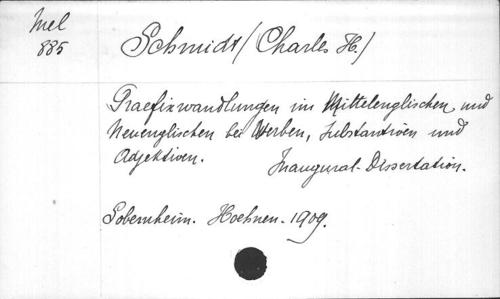 Mel
885
Schmidt (Charles H.)
Praefixwandlungen im Mittelenglischen und
Neuenglischen bei Verben, Substantiven und
Adjektiven. Inaugural-Dissertation.
Sobernheim. Hoehnen. 1909.